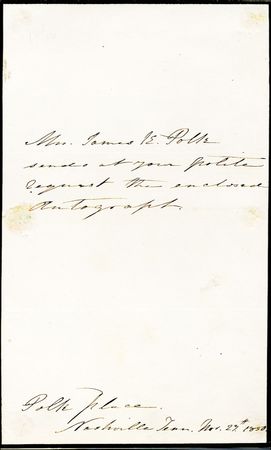 Mrs. James K. Polk
sends at your polite
request the enclosed
Autograph.
Polk Place.
Nashville Tenn. Nov. 27th